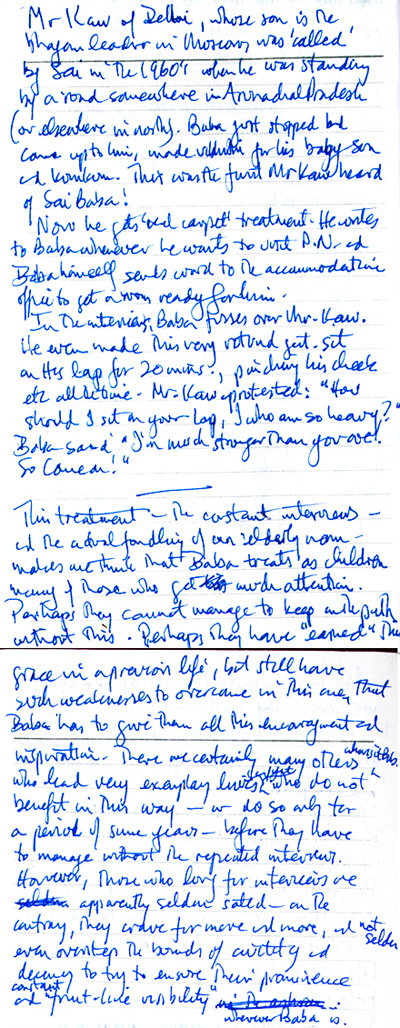 Mr Kaw of Delhi, whose son is the
bhajan leader in Moscow was 'called'
by Sai in the 1960's when he was standing
by a road somewhere in Arunachal Pradesh
(or elsewhere in north). Baba just stopped and
came up to him, made vibhuti for his baby son
and kumkum. That was the first Mr Kaw heard
of Sai Baba!
Now he gets 'red carpet' treatment. He writes
to Baba whenever he wants to visit P.N. and
Baba himself sends word to the accommodation
office to get a room ready for him.
In the interviews, Baba fusses over Mr. Kaw.
He even made this very rotund gent. sit
on His lap for 20 mins., pinching his cheek
etc all the time. Mr. Kaw protested: "How
should I sit on your lap, I who am so heavy?"
Baba said "I'm much stronger than you are!
So Come on!"
This treatment – the constant interviews –
and the actual fondling of an elderly man –
makes me think that Baba treats as children
many of those who get much attention.
Perhaps they cannot manage to keep on the path
without this. Perhaps they have "earned" this
grace in a previous life, but still have
such weaknesses to overcome in this one, that
Baba has to give them all this encouragement and
inspiration. There are certainly many others
who lead very exemplary lives, who do not
benefit in this way – or do so only for
a period of some years – before they have
to manage without the repeated interviews.
However, those who long for interviews are
seldom apparently seldom sated – on the
contrary, they crave for more and more, and not seldom
even overstep the bounds of civility and
decency to try to ensure their prominence
and constant "front-line visibility"
wherever Baba is.